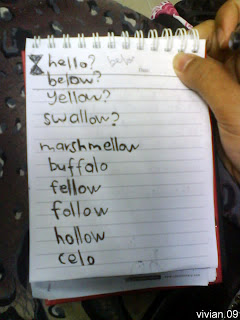 hello?
below?
yellow?
swallow?
marshmellow
buffalo
fellow
follow
hollow
colo
vivian.09